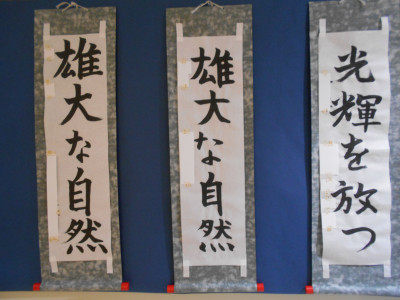 雄大な自然
雄大な自然
光輝を放つ